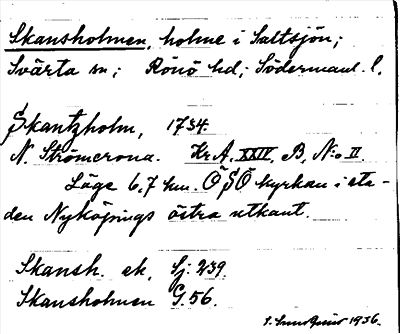 Skansholmen, holme i Saltsjön;
Svärta sn; Rönö hd; Södermanl. l.
Skantzholm, 1734.
N. Strömcrona. Kr A, XXIV, B, N:o II.
Läge 6,7 km. ÖSÖ kyrkan i sta-
den Nyköpings östra utkant.
Skansh. ek. Sj. 239.
Skansholmen G. 56.
1936.